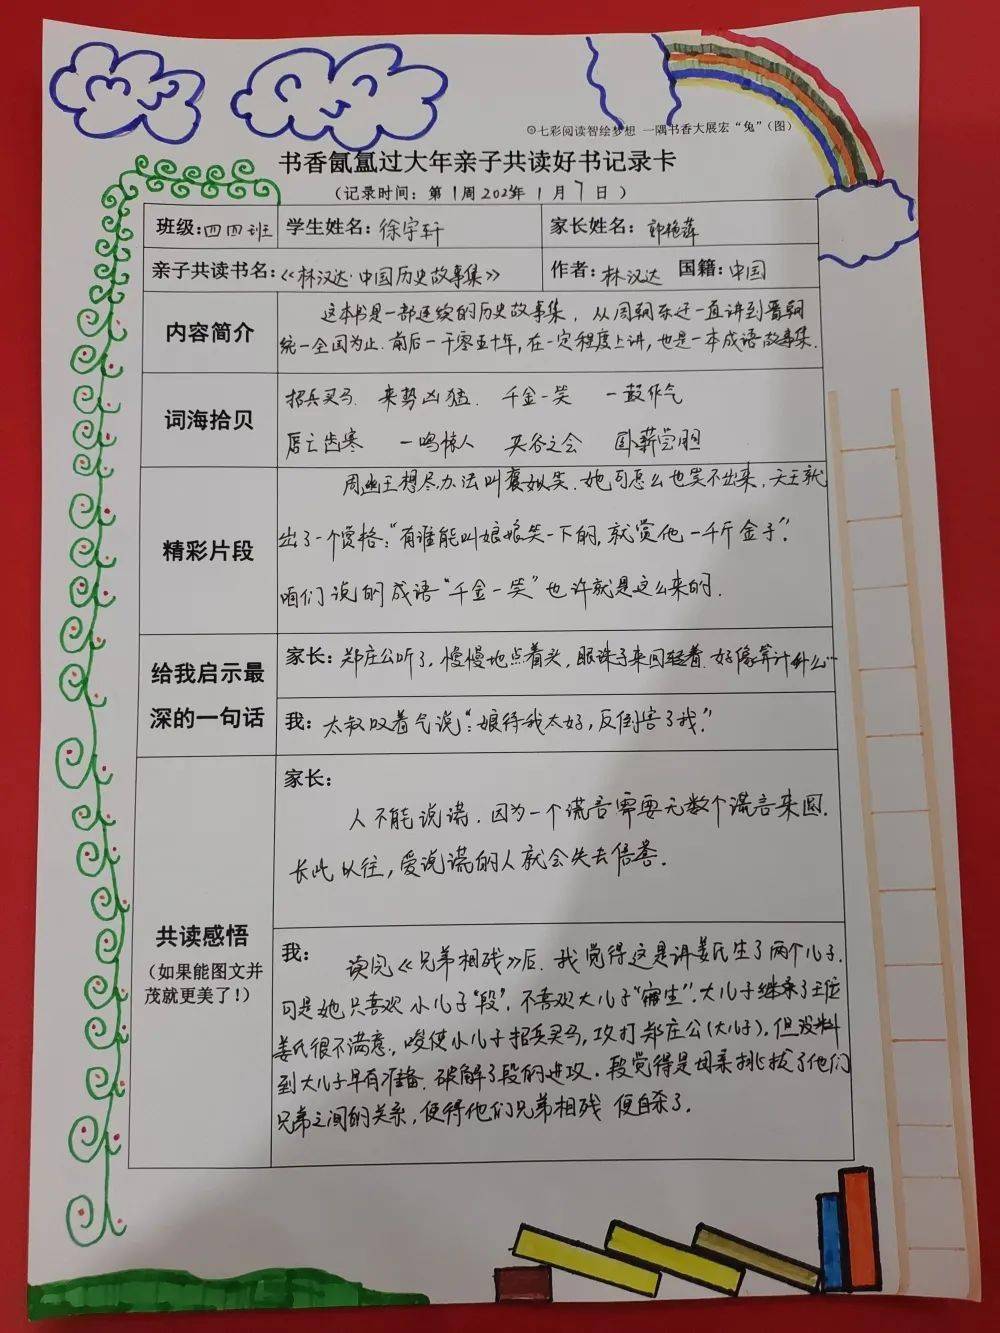 七彩阅读智绘梦想 一隅书香大展宏“兔”(图)
书香氤氲过大年亲子共读好书记录卡
(记录时间：第1周2023年1月7日)
班级:四四班 学生姓名:徐宇轩 家长姓名:郭艳萍
亲子共读书名:《林汉达·中国历史故事集》 作者:林汉达 国籍:中国
内容简介
这本书是一部连续的历史故事集，从周朝东迁一直讲到晋朝
统一全国为止.前后一千零五十年,在一定程度上讲,也是一本成语故事集.
词海拾贝
招兵买马 来势凶猛. 千金一笑 一鼓作气
唇亡齿寒 一鸣惊人 夹谷之会 卧薪尝胆
精彩片段
周幽王想尽办法叫褒姒笑.她可怎么也笑不出来,天王就
出了一个赏格:“有谁能叫娘娘笑一下的,就赏他一千斤金子”.
咱们说的成语“千金一笑”也许就是这么来的.
给我启示最
深的一句话
家长:郑庄公听了,慢慢地点着头,眼珠子来回转着.好像算计什么…
我:太叔叹着气说:“娘待我太好,反倒害了我.”
共读感悟
(如果能图文并
茂就更美了!)
家长:
人不能说谎.因为一个谎言需要无数个谎言来圆.
长此以往,爱说谎的人就会失去信誉.
我:
读完《兄弟相残》后.我觉得这是讲姜氏生了两个儿子.
可是她只喜欢小儿子“段”.不喜欢大儿子“寤生”.大儿子继承了王位
姜氏很不满意.,唆使小儿子招兵买马,攻打郑庄公(大儿子).但没料
到大儿子早有准备.破解了段的进攻.段觉得是母亲挑拨了他们
兄弟之间的关系,使得他们兄弟相残 便自杀了.